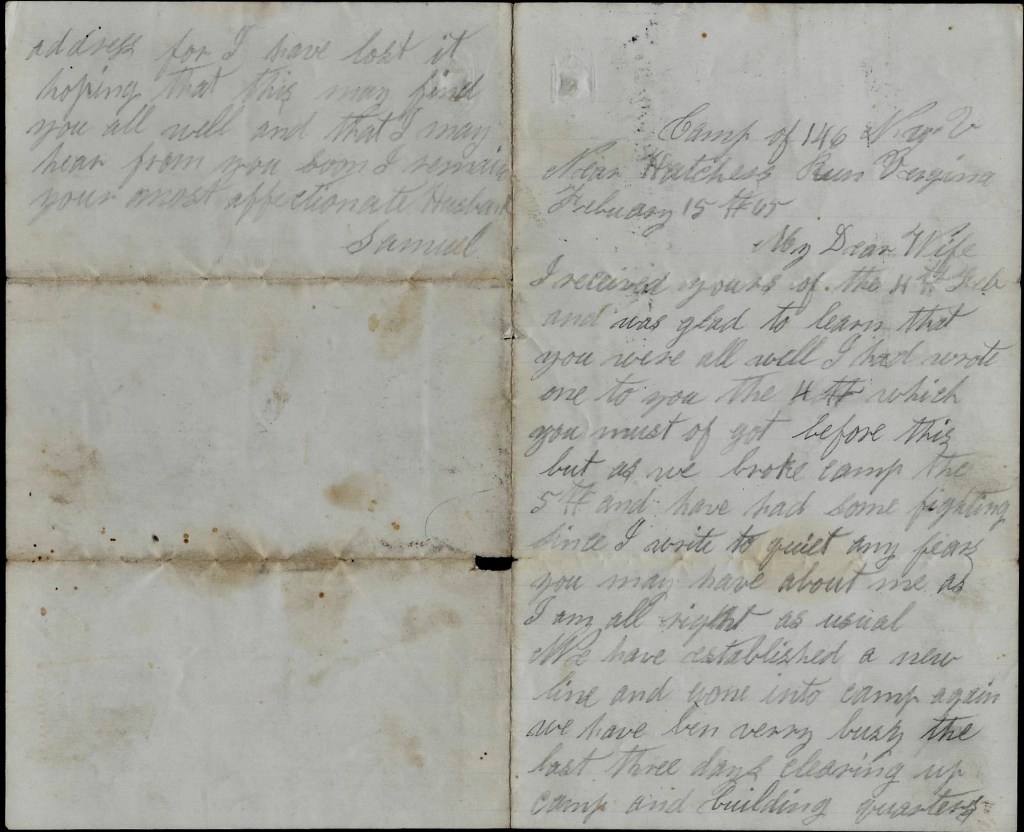 Camp of 146 N.Y. V
Near Hatchers Run Virgina
Febuary 15th 65
My Dear Wife
I received yours of the 4th Feb
and was glad to learn that
you were all well I had wrote
one to you the 4th which
you must of got before this
but as we broke camp the
5th and have had some fighting
since I write to quiet any fears
you may have about me as
I am all right as usual
We have established a new
line and gone into camp again
we have ben verry busy the
last three days clearing up
camp and building quarters
address for I have lost it
hoping that this may find
you all well and that I may
hear from you soon I remain
your most affectionate Husband
Samuel